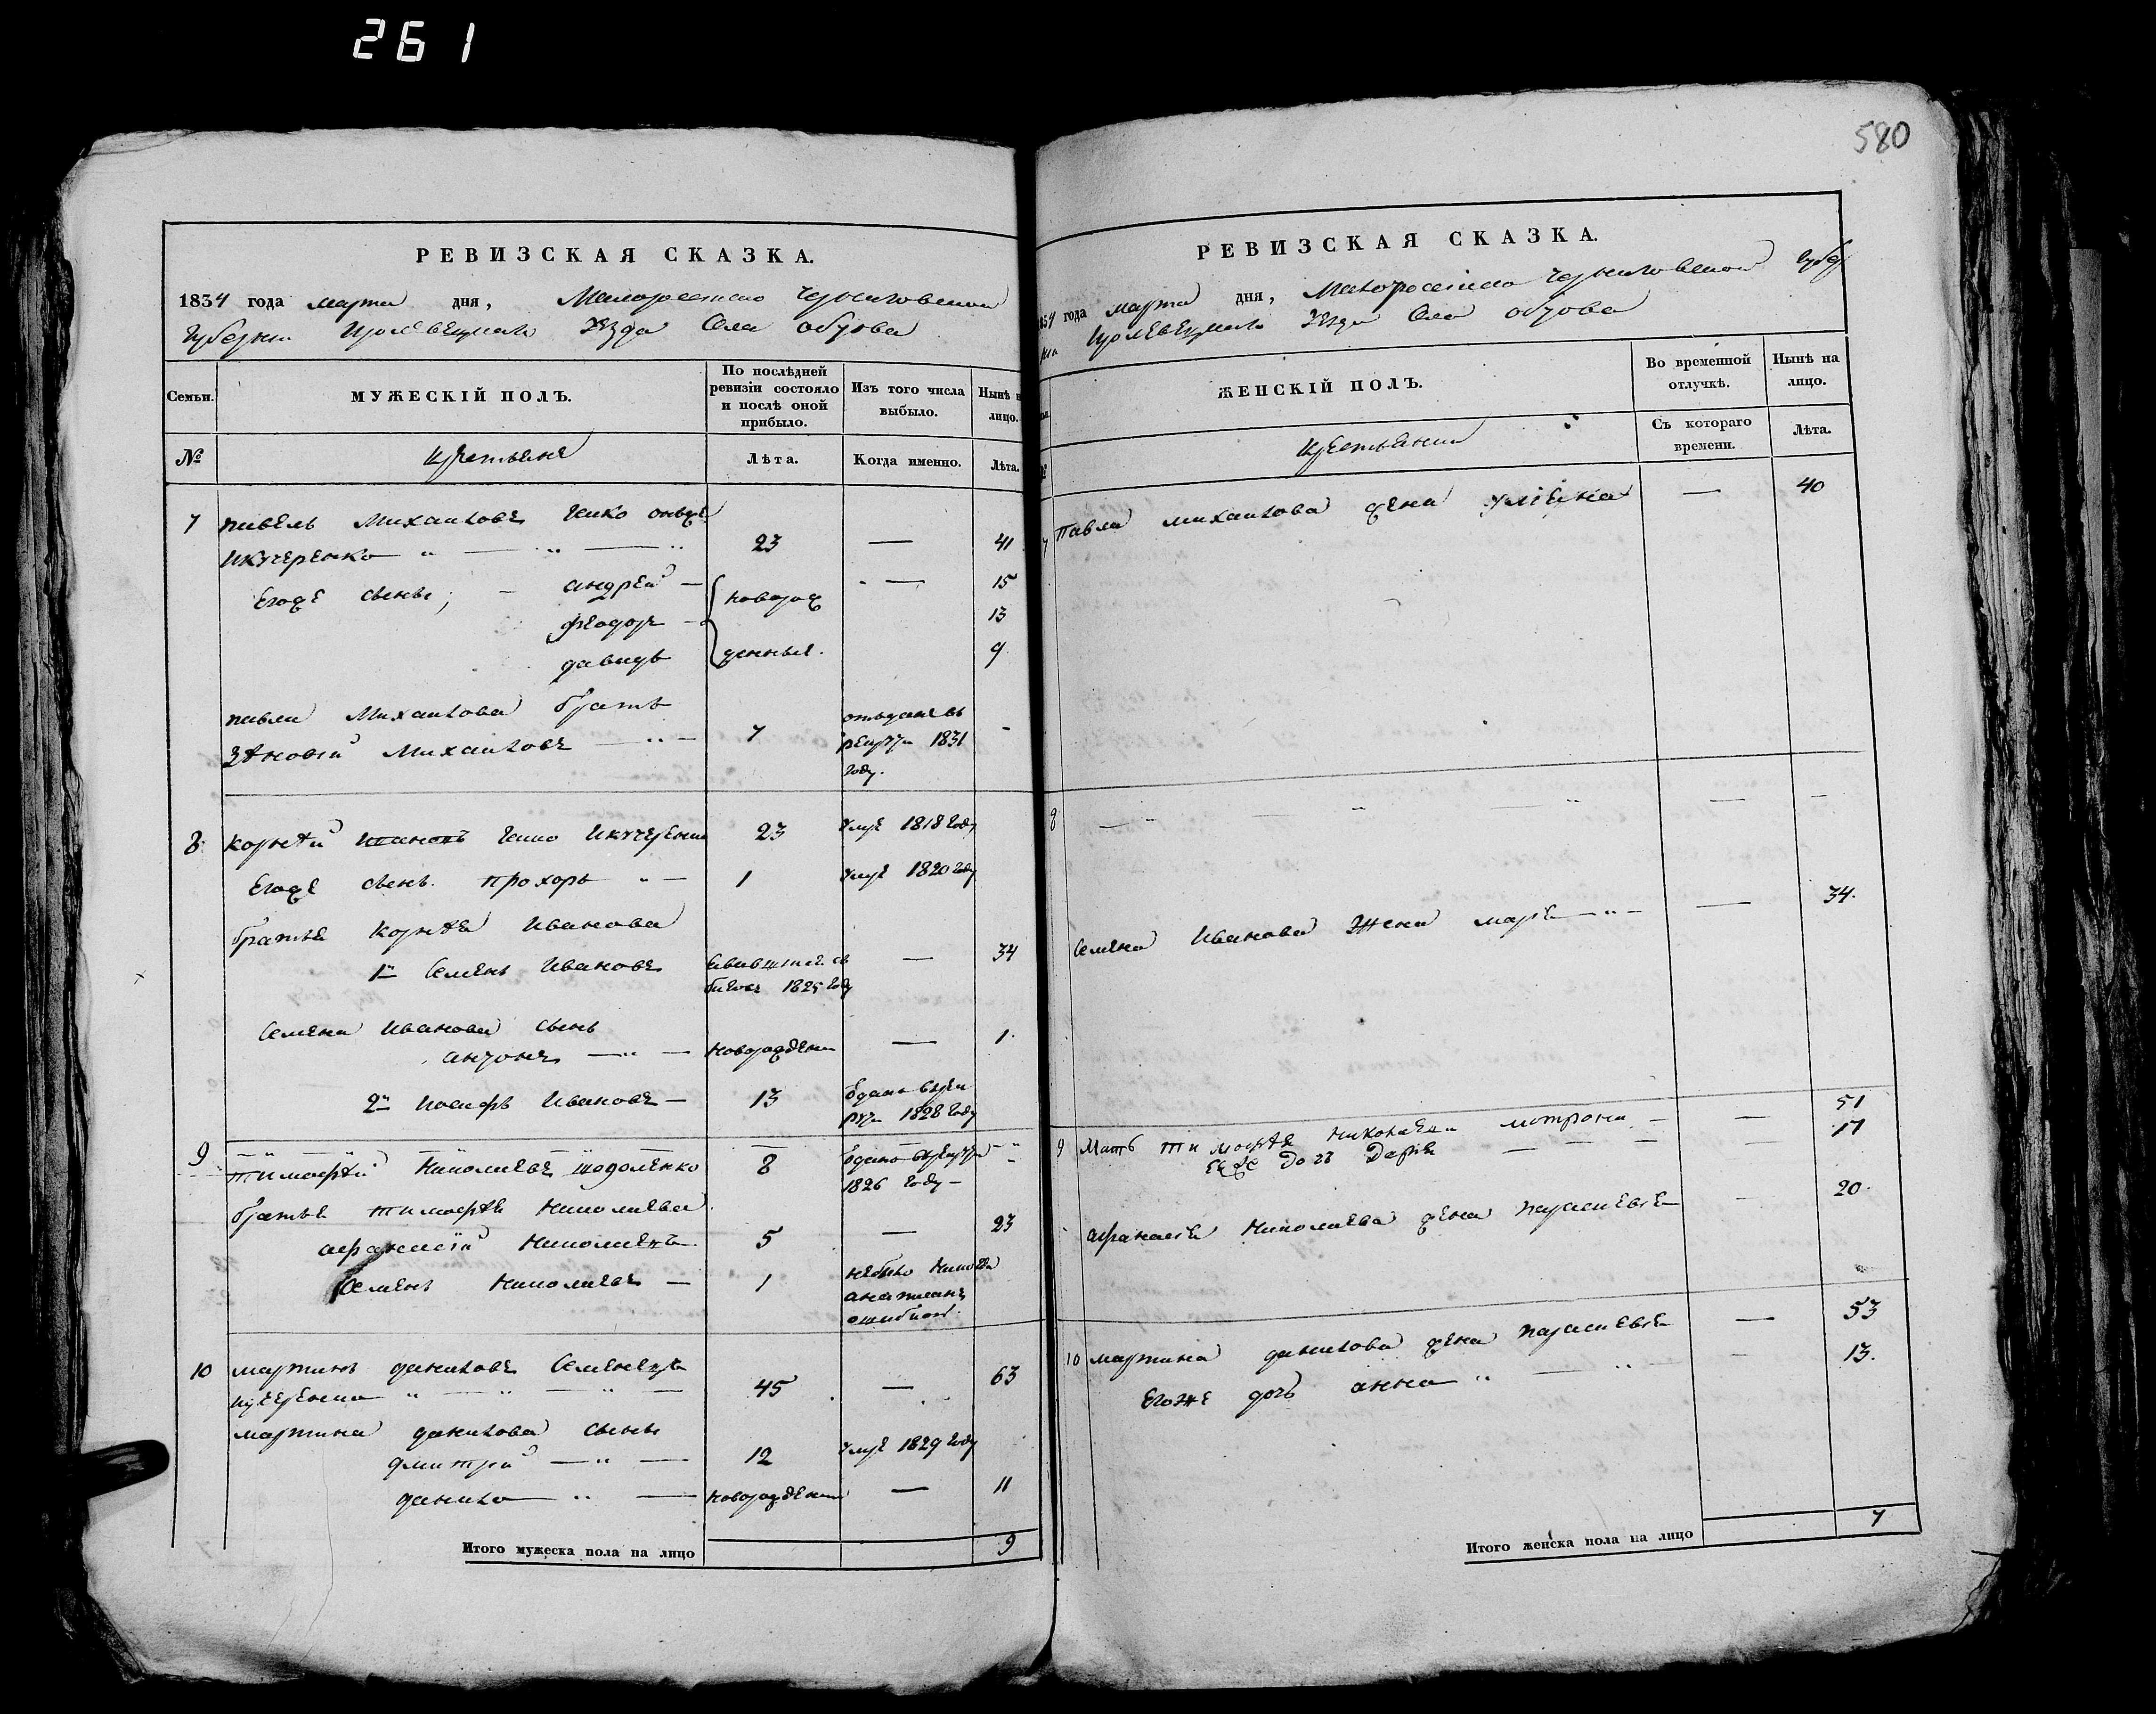 261
580
РЕВИЗСКАЯ СКАЗКА.
1834 года марта дня, Малоросiйско Черниговской
Губернi Кролевецкаго уезда Села обтова
Семьи.
МУЖЕСКIЙ ПОЛЪ.
По послѣдней ревизiи состояло и послѣ оной прибыло.
Изъ того числа выбыло.
Нынѣ на лицо.
№
крестьяне
Лѣта.
Когда именно.
Лѣта.
7 павелъ Михайловъ
23 — 41
Егоже сыны; — андрей — новорож — 15
феодоръ — 13
давидъ денные. 9
павла Михайлова братъ
Зѣновiй Михайловъ — 7 отъданъ въ рекруты 1831 году. -
8 корнѣй 23 умре 1818 году
Егоже сынъ прохоръ — 1 умре 1820 году
братья корнѣя Иванова
1й Семенъ Ивановъ 1825 году — 34
Семена Иванова сынъ
антонъ — новорожден — 1.
2й иосифъ Ивановъ — 13 1828 году
9 тимофѣй Николаевъ 8
1826 году —
братья тимофѣя Николаева
афанасiй Николаевъ 5 — 23
Семенъ Николаевъ — 1 небыло
ошибкой
10 мартинъ даниловъ
45 — 63
мартина данилова сыны
дмитрiй — 12 умре 1829 году
данило — новорожден — 11
Итого мужеска пола на лицо 9
РЕВИЗСКАЯ СКАЗКА.
года марта дня, Малоросiйско Черниговской Губер
Кролевецкаго уезда Села обтова
ЖЕНСКIЙ ПОЛЪ.
Во временной отлучкѣ.
Нынѣ на лицо.
крестьянки
Съ котораго времени.
Лѣта.
7 Павла михайлова жена улiяна — 40
8 — — —
Семена Иванова Жена марья — 34.
9 Мать тимофѣя николаева мотрона — 51
Ея же дочь Дарья — 17
афанасiя Николаева жена параскевiя — 20.
10 мартина данилова жена параскевiя — 53
Егоже дочь анна — 13.
Итого женска пола на лицо 7